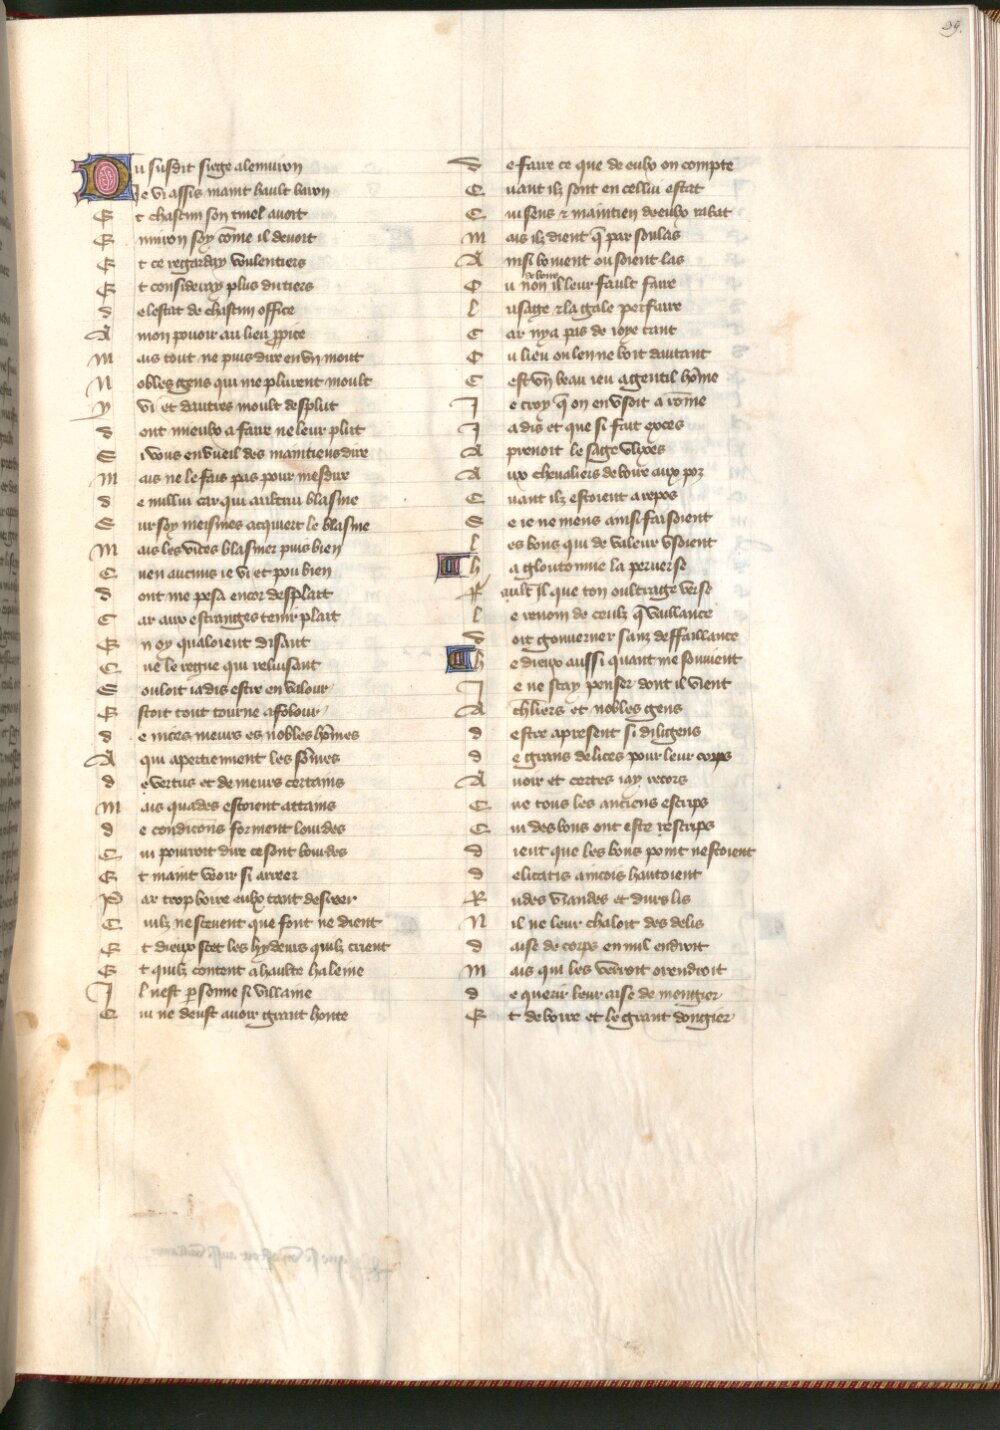 29.
Du susdit siege alenuiron
Je vi assis maint hault baron
Et chascun son tinel auoit
Enuiron soy cōme il deuoit
Et ce regarday voulentiers
Et consideray plus du tiers
de lestat de chascun office
A mon pouoir au lieu ꝓpice
Mais tout ne puis dire en vn mout
Nobles gens qui me plurent moult
y vi et dautres moult desplut
dont mieulx a faire ne leur plut
Si vous en vueil des maintiens dire
Mais ne le fais pas pour mesdire
de nullui car qui autrui blasme
Sur soy meismes acquiert le blasme
Mais les vices blasmer puis bien
Quen aucuns ie vi et pou bien
dont me pesa encor desplait
Car aux estranges tenir plait
En oy qualoient disant
Que le regne qui reluisant
Souloit iadis estre en valour
Estoit tout tourne a folour
de nices meurs es nobles hōmes
A qui apertiennent les sōmes
de vertus et de meurs certains
Mais quades estoient attains
de condicōns forment lourdes
Qui pourroit dire ce sont bourdes
Et maint voir si arreer
Par trop boire eulx tant desreer
Quilz ne sceuent que font ne dient
Et dieux scet les hydeurs quilz crient
Et quilz content a haulte haleine
Il nest ꝑsonne si villaine
Qui ne deust auoir grant honte
de faire ce que de eulx on compte
Quant ilz sont en cellui estat
Qui sens & maintien de eulx rabat
Mais ilz dient q̄ par soulas
Ainsi boiuent ou soient las
de boire
Ou non il leur fault faire
lusage & la gale perfaire
Car ny a pas de ioye tant
Ou lieu ou len ne boit dautant
Cest vn beau ieu a gentil hōme
Je croy q̄ on en vsoit a rōme
Jadis et que si fait exces
Aprenoit le sage vlixes
Aux cheualiers de boire aux poz
Quant ilz estoient a repos
Se ie ne mens ainsi faisoient
les bons qui de valeur vsoient
Ha gloutonnie la peruerse
Fault il que ton oultrage verse
le renom de ceulz q̄ vaillance
doit gouuerner sanz deffaillance
He dieux aussi quant me souuient
Je ne scay penser dont il vient
A ch̄liers et nobles gens
destre apresent si diligens
de grans delices pour leur corps
Auoir et certes iay recors
Que tous les anciens escrips
Qui des bons ont este rescrips
dient que les bons point nestoient
delicatis aincois hantoient
Rudes viandes et durs lis
Nil ne leur chaloit des delis
daise de corps en nul endroit
Mais qui les verroit orendroit
de querir leur aise de mengier
Et de boire et le grant dongier